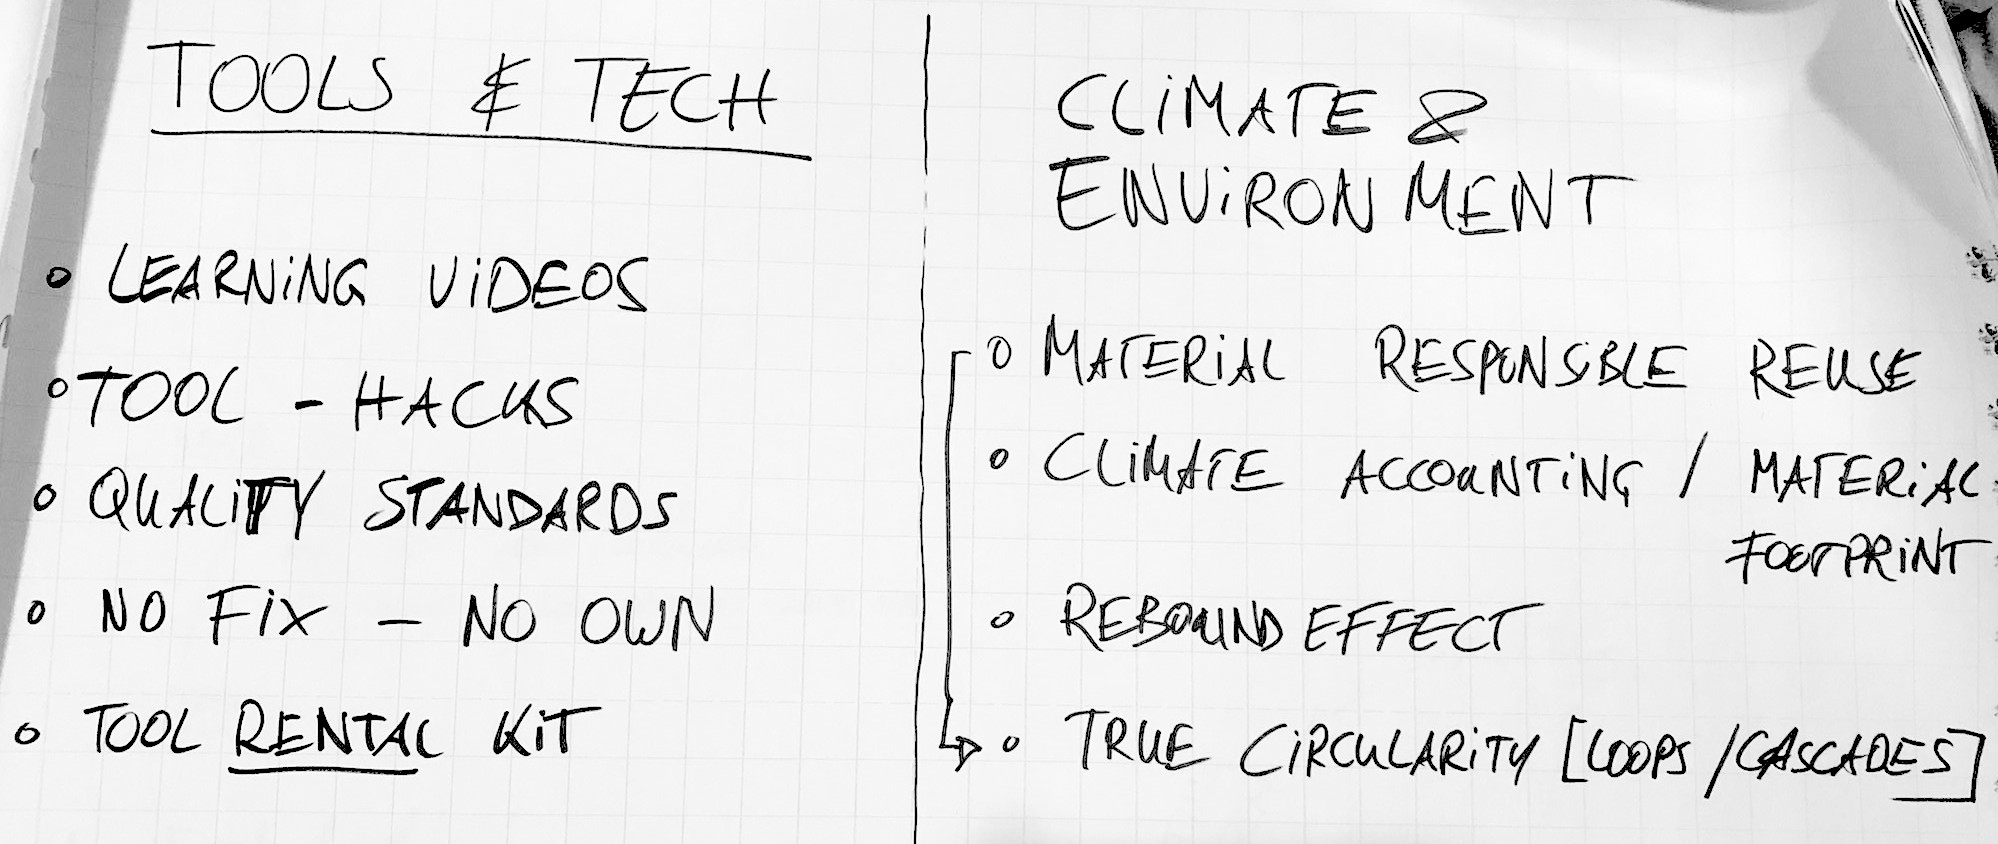 TOOLS & TECH
• LEARNING VIDEOS
• TOOL - HACKS
• QUALITY STANDARDS
• NO FIX - NO OWN
• TOOL RENTAL KIT
CLIMATE &
ENVIRONMENT
• MATERIAL RESPONSIBLE REUSE
• CLIMATE ACCOUNTING / MATERIAL
FOOTPRINT
• REBOUND EFFECT
• TRUE CIRCULARITY [LOOPS / CASCADES]